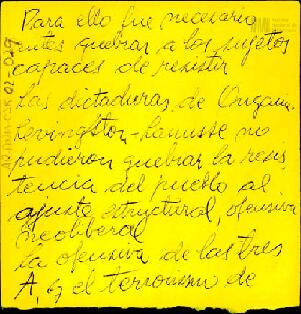 Para ello fue necesario
antes quebrar a los sujetos
capaces de resistir
Las dictaduras de Ongania-
Levingston-Lanusse no
pudieron quebrar la resis
tencia del pueblo al
ajuste estructural, ofensiva
neoliberal
La ofensiva de las tres
A, y el terrorismo de